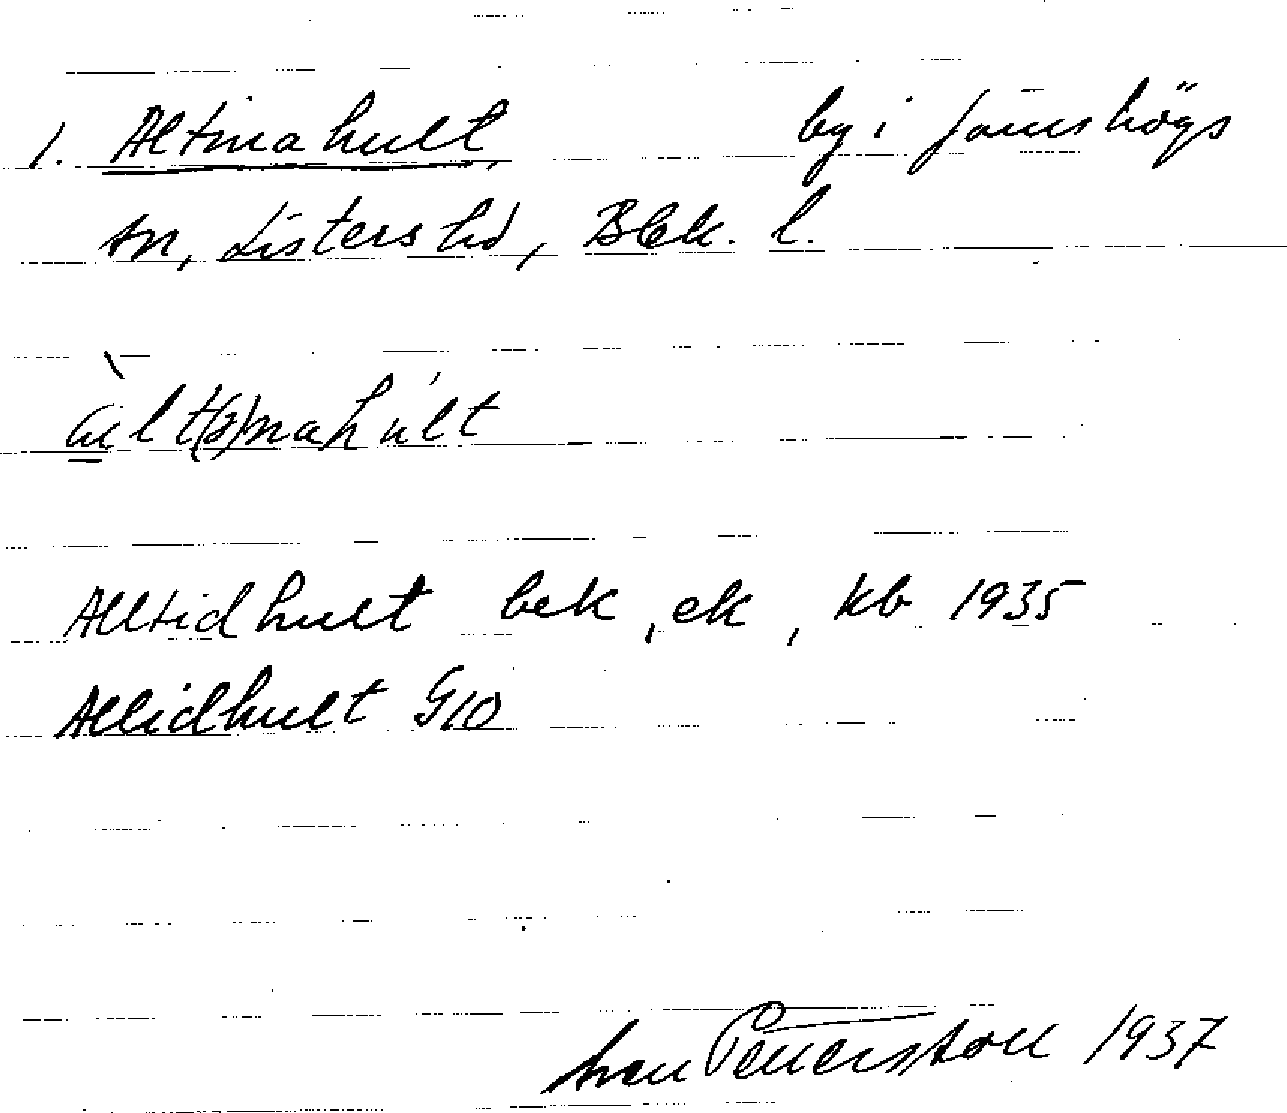 1. Altmahult, by i Jämshögs
sn, Listers hd, Blek. l.
àlt(ə)mahúlt
Alltidhult bek, ek, kb 1935
Allidhult G10
Sven Petterson 1937